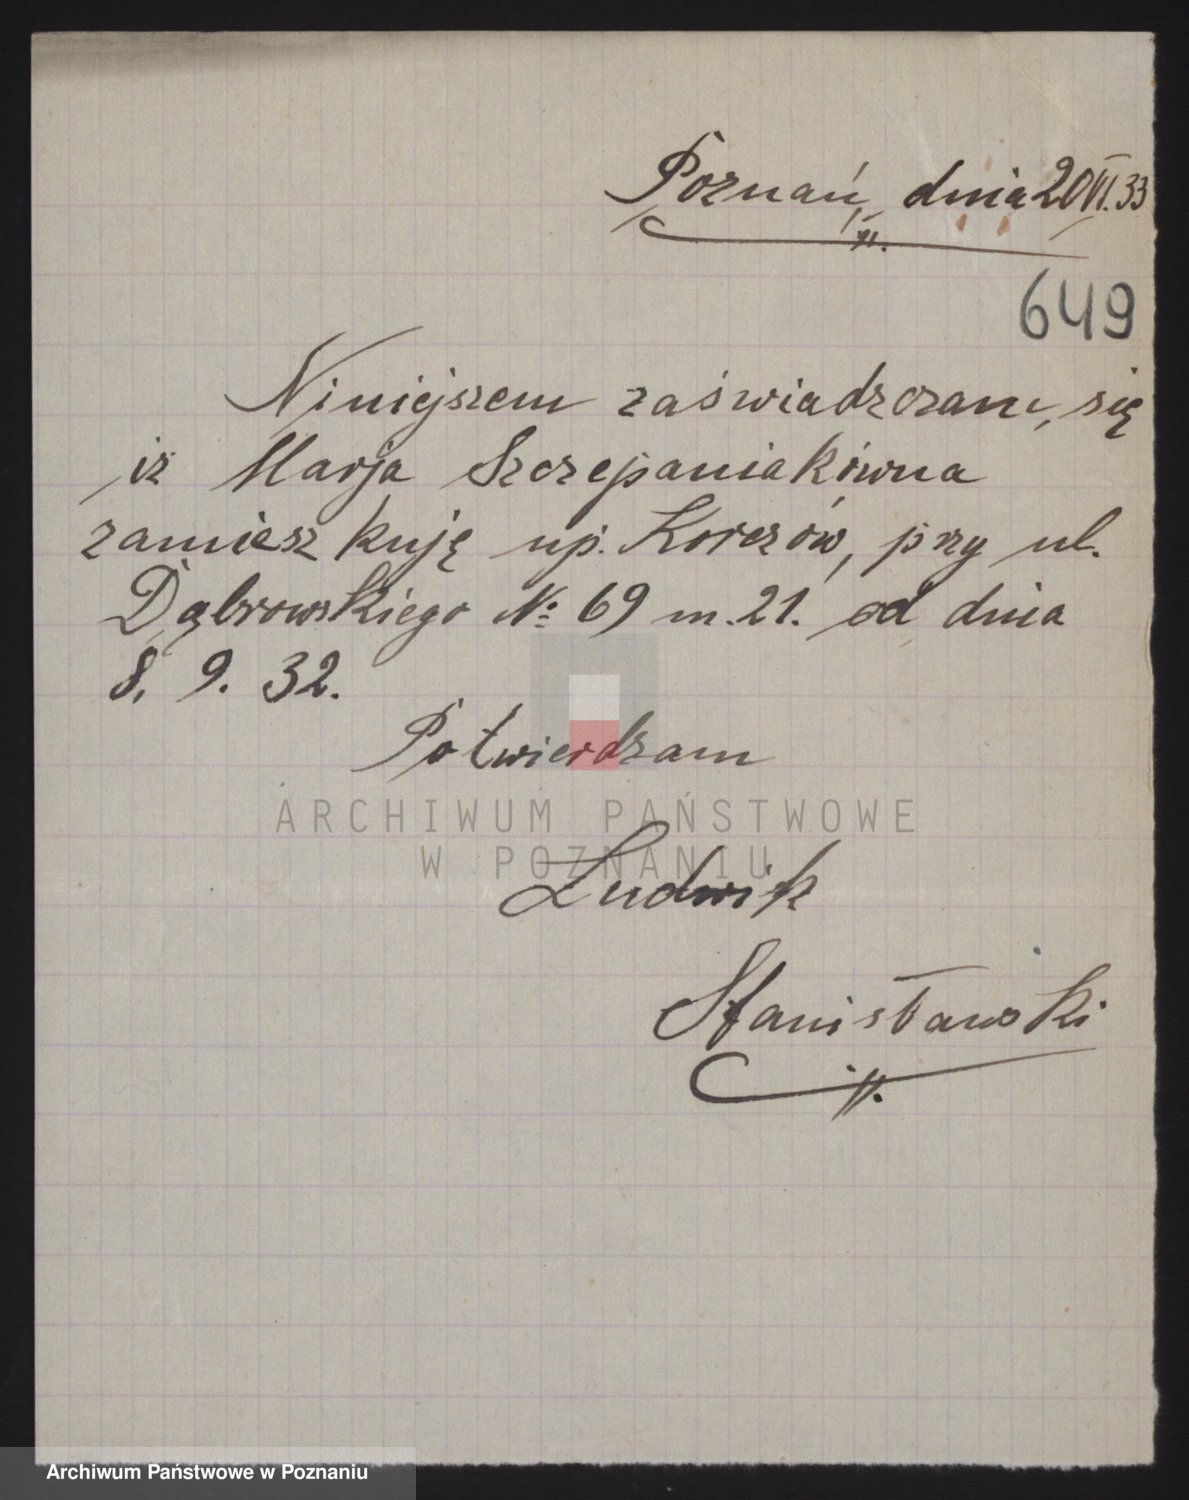 Poznań, dnia 20 VI. 33
649
Niniejszem zaświadczam, się
iż Marja Szczepaniakówna
zamieszkuję up. Korczów, przy ul.
Dąbrowskiego No 69 m. 21. od dnia
8. 9. 32.
Potwierdzam
ARCHIWUM PAŃSTWOWE
W POZNANIU
Ludwik
Stanisławski
Archiwum Państwowe w Poznaniu